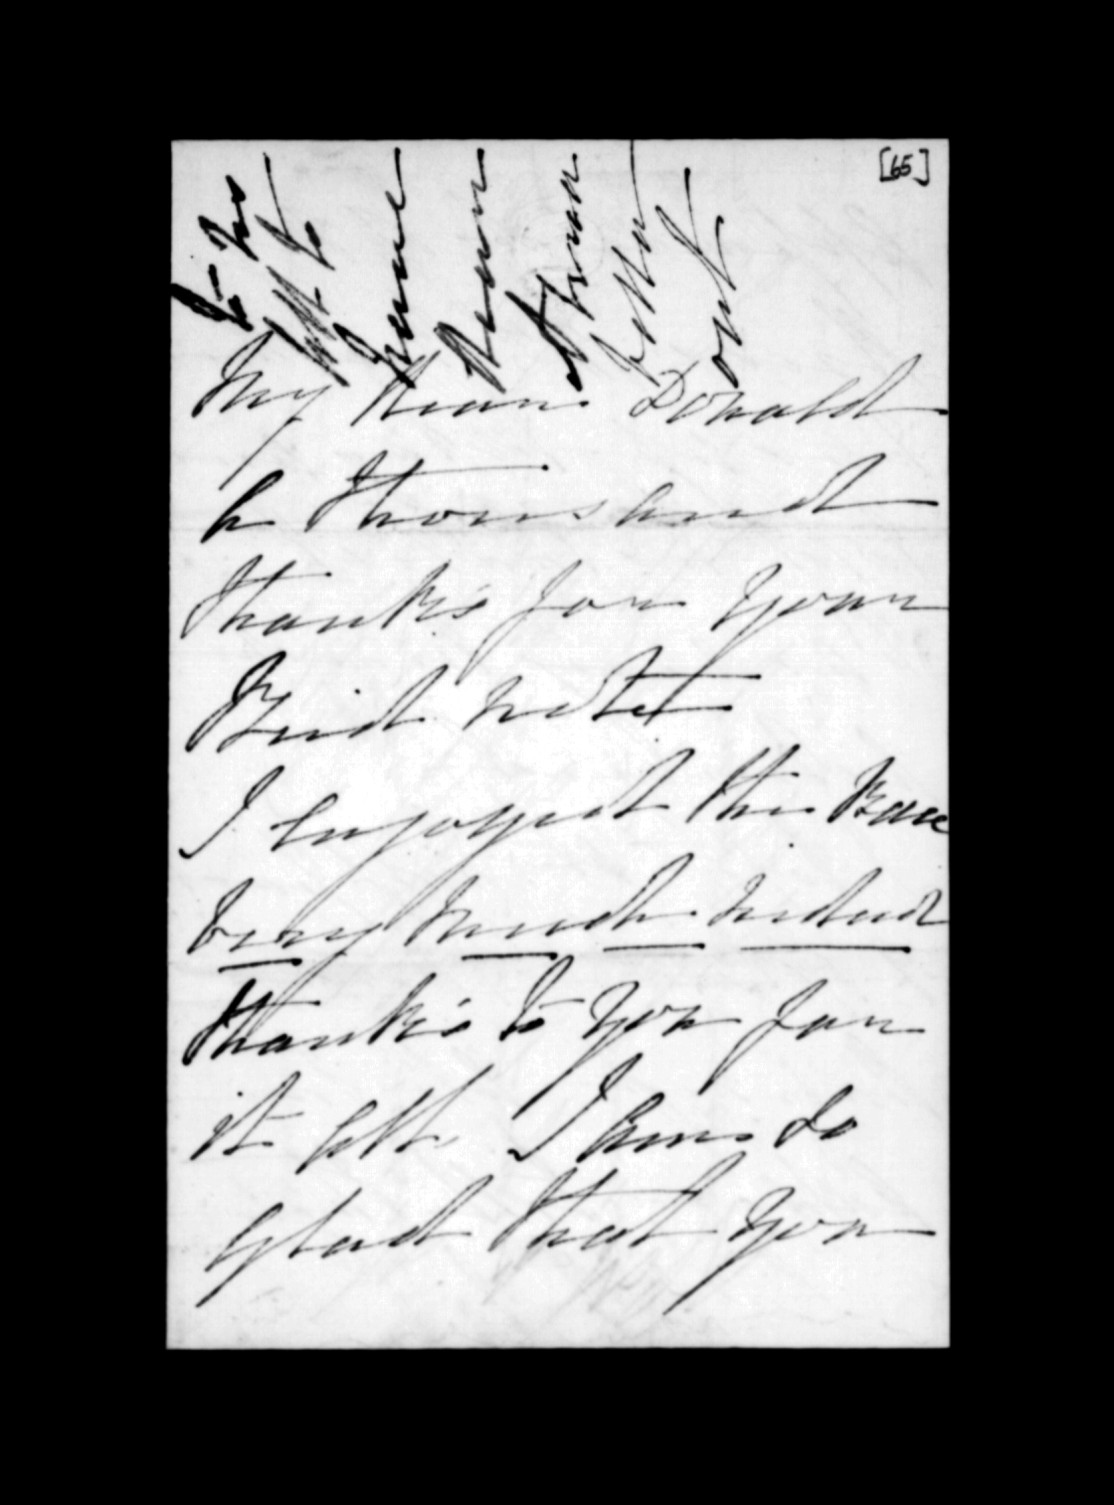 [65]
My dear Donald
A thousand
thanks for your
Kind note
I enjoyed the Race
very much indeed
thanks to you for
it all. I am so
glad that you